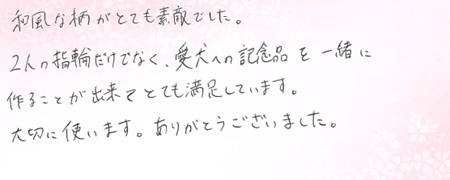 和風な柄がとても素敵でした。
2人の指輪だけでなく、愛犬への記念品を一緒に
作ることが出来てとても満足しています。
大切に使います。ありがとうございました。